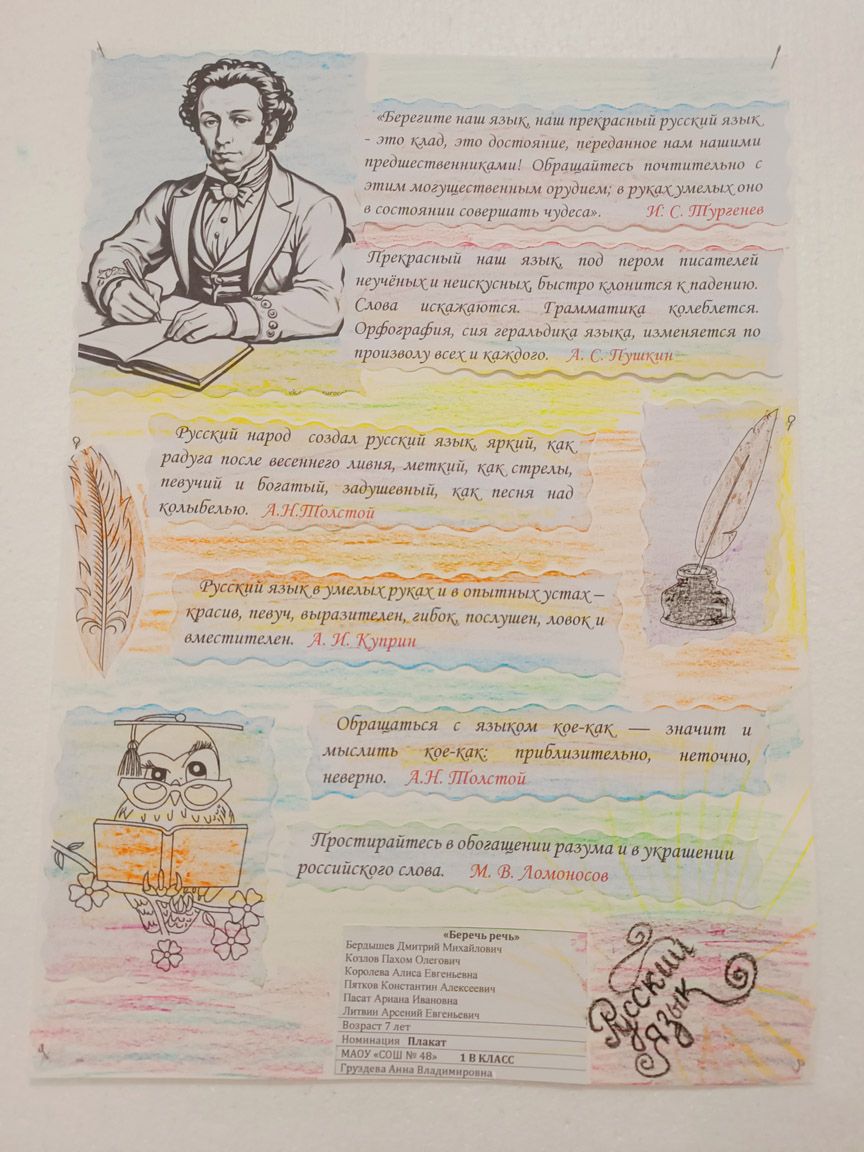 «Берегите наш язык, наш прекрасный русский язык
- это клад, это достояние, переданное нам нашими
предшественниками! Обращайтесь почтительно с
этим могущественным орудием; в руках умелых оно
в состоянии совершать чудеса». И. С. Тургенев
Прекрасный наш язык, под пером писателей
неучёных и неискусных, быстро клонится к падению.
Слова искажаются. Грамматика колеблется.
Орфография, сия геральдика языка, изменяется по
произволу всех и каждого. А. С. Пушкин
Русский народ создал русский язык, яркий, как
радуга после весеннего ливня, меткий, как стрелы,
певучий и богатый, задушевный, как песня над
колыбелью. А.Н.Толстой
Русский язык в умелых руках и в опытных устах –
красив, певуч, выразителен, гибок, послушен, ловок и
вместителен. А. И. Куприн
Обращаться с языком кое-как — значит и
мыслить кое-как: приблизительно, неточно,
неверно. А.Н. Толстой
Простирайтесь в обогащении разума и в украшении
российского слова. М. В. Ломоносов
«Беречь речь»
Бердышев Дмитрий Михайлович
Козлов Пахом Олегович
Королева Алиса Евгеньевна
Пятков Константин Алексеевич
Пасат Ариана Ивановна
Литвин Арсений Евгеньевич
Возраст 7 лет
Номинация Плакат
МАОУ «СОШ № 48» 1 В КЛАСС
Груздева Анна Владимировна
Русский
Язык